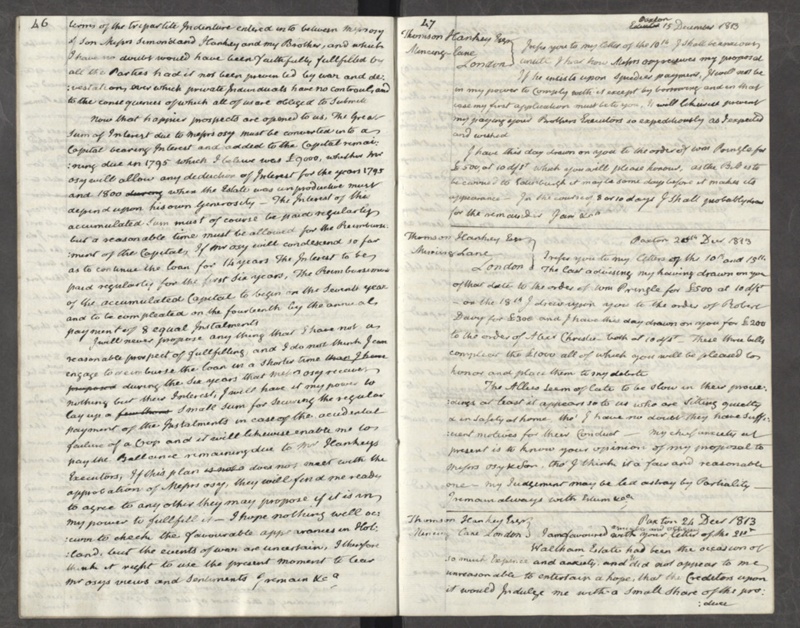 46
terms of the tripartite Indenture entered into between Mr Osy
& Son Messrs Simond and Hankey and my Brother, and which
I have no doubt would have been faithfully fullfilled by
all the Parties had it not been prevented by war and de-
:vastation, over which private Individuals have no controul, and
to the consequences of which all of us are obliged to Submit
Now that happier prospects are opened to us. The Great
Sum of Interest due to Mess Osy must be converted into a
Capital bearing Interest and added to the Capital remai-
:ning due in 1795 which I believe was £9000, whether Mr
Osy will allow any deduction of Interest for the years 1795
and 1800 during when the Estate was unproductive must
depend upon his own Generosity — The Interest of the
accumulated Sum must of course be paid regularly
but a reasonable time must be allowed for the Reimburse-
:ment of the Capital, If Mr Osy will condescend so far
as to continue the loan for 14 years The Interest to be
paid regularly for the first Six years, The Reimbursement
of the accumulated Capital to begin on the Seventh year
and to be compleated on the fourteenth by the annual
payment of 8 equal Instalments
I will never propose any thing that I have not a
reasonable prospect of fullfilling, and I do not think I can
engage to reimburse the loan in a Shorter time than I have
proposed during the Six years that Mess Osy receives
nothing but their Interest, I will have it in my power to
lay up a Small Sum for securing the regular
payment of the Instalments in case of the accidental
failure of a Crop and it will likewise enable me to
pay the Ballance remaining due to Mr Hankeys
Executors, If this plan does not meet with the
approbation of Mess Osy, they will find me ready
to agree to any other they may propose if it is in
my power to fullfill it — I hope nothing will oc-
:curr to check the favourable appearances in Hol-
:land, but the events of war are uncertain, I therefore
think it right to use the present moment to learn
Mr Osys views and Sentiments I remain &c a
47
Paxton
15 December 1813
Thomson Hankey Esqr
Mincing Lane
London
I refer you to my letter of the 10th I shall be anxious
untill I hear how Messrs Osy receives my proposal
If he insists upon Speedier payment, it will not be
in my power to Comply with it except by borrowing and in that
case my first application must be to you, It will likewise prevent
my paying your Brothers Executors so expeditiously as I expected
and wished
I have this day drawn on you to the order of Wm Pringle for
£500 at 10 d/st which you will please honour, as the Bill is to
be carried to Edinburgh it may be some days before it makes its
appearance — In the course of 8 or 10 days I shall probably draw
for the remainder I am &c a
Thomson Hankey Esqr
Mincing Lane
London
Paxton 20th Decr 1813
I refer you to my letters of the 10th and 15th:
The last advising my having drawn on you
of that date to the order of Wm Pringle for £500 at 10 d/st
— on the 18th I drew upon you to the order of Robert
Davy for £300 and I have this day drawn on you for £200
to the order of Alexr Christie both at 10 d/st. These three bills
compleat the £1000 all of which you will be pleased to
honor and place them to my debit
The Allies seem of late to be slow in their procee-
:dings at least it appears so to us who are sitting quietly
& in safety at home, tho' I have no doubt they have suffi-
:cient motives for their Conduct — My chief anxiety at
present is to know your opinion of my proposal to
Messrs Osy & Son, tho I think it a fair and reasonable
one — my Judgement may be led astray by Partiality —
I remain always with Esteem &c a
Thomson Hankey Esqr
Mincing Lane London
Paxton 24 Decr 1813
I am favoured with your letter of the 21st
Waltham Estate had been the occasion of
so much Expence and anxiety, and did not appear to me
unreasonable to entertain a hope, that the Creditors upon
it would Indulge me with a small share of the pro-
:duce